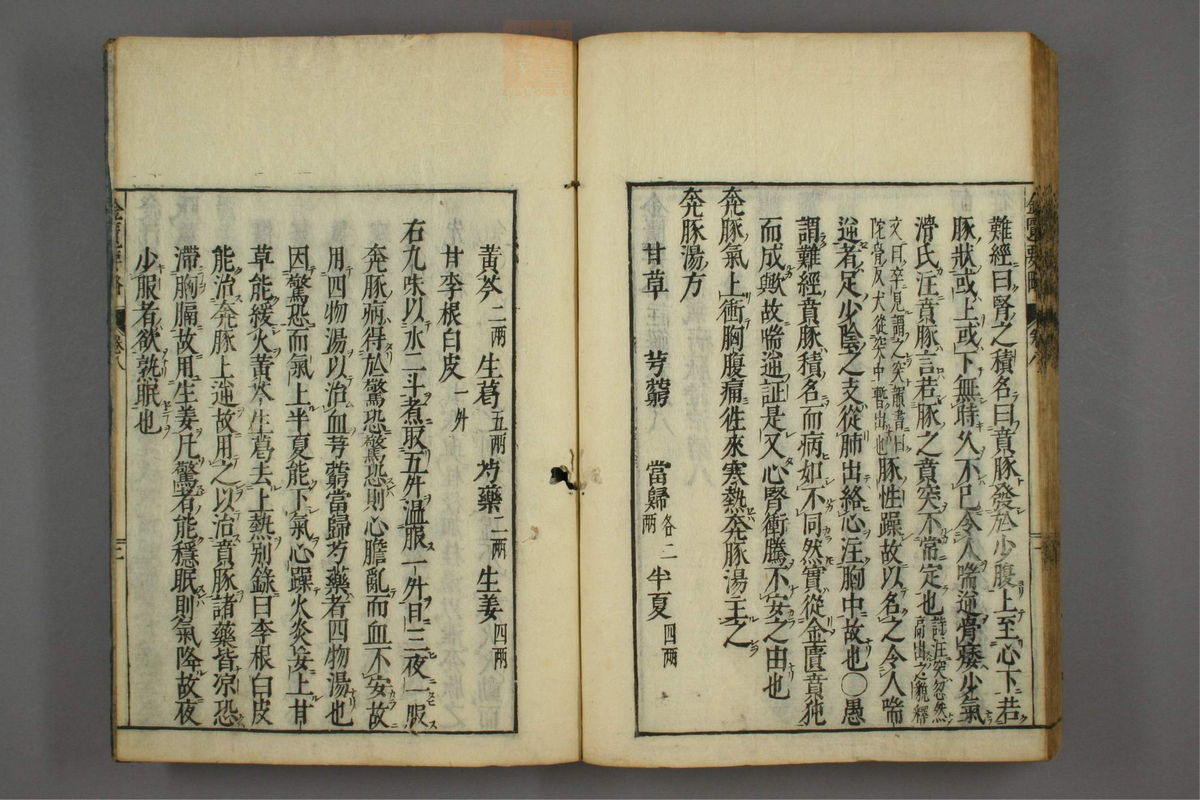 難經曰腎之積名曰賁豚發於少腹上至心下若
豚狀或上或下無時久不已令人喘逆骨痿少氣
滑氏注賁豚言若豚之賁突不常定也説注突忽然
高出之貌釋
文曰卒見謂之突韻書曰
陀骨反犬從突中暫出也豚性躁故以名之令人喘
逆者足少陰之支從肺出絡心注胸中故也〇愚
謂難經賁豚積名而病如不同然實從金匱賁㹠
而成歟故喘逆証是又心腎衝騰不安之由也
奔豚氣上衝胸腹痛徃來寒熱奔豚湯主之
奔豚湯方
甘草 芎藭 當歸各二兩 半夏四兩
黃芩二兩 生葛五兩 芍藥二兩 生姜四兩
甘李根白皮一升
右九味以水二斗煮取五升温服一升日三夜一服
奔豚病得於驚恐驚恐則心膽亂而血不安故
用四物湯以治血芎藭當歸芍藥者四物湯也
因驚恐而氣上半夏能下氣心躁火炎妄上甘
草能緩火黃芩生葛去上熱別錄曰李根白皮
能治奔豚上逆故用之以治賁豚諸藥皆凉恐
滯胸膈故用生姜凡驚者能穩眠則氣降故夜
少服者欲熟眠也
金匱要略 卷八